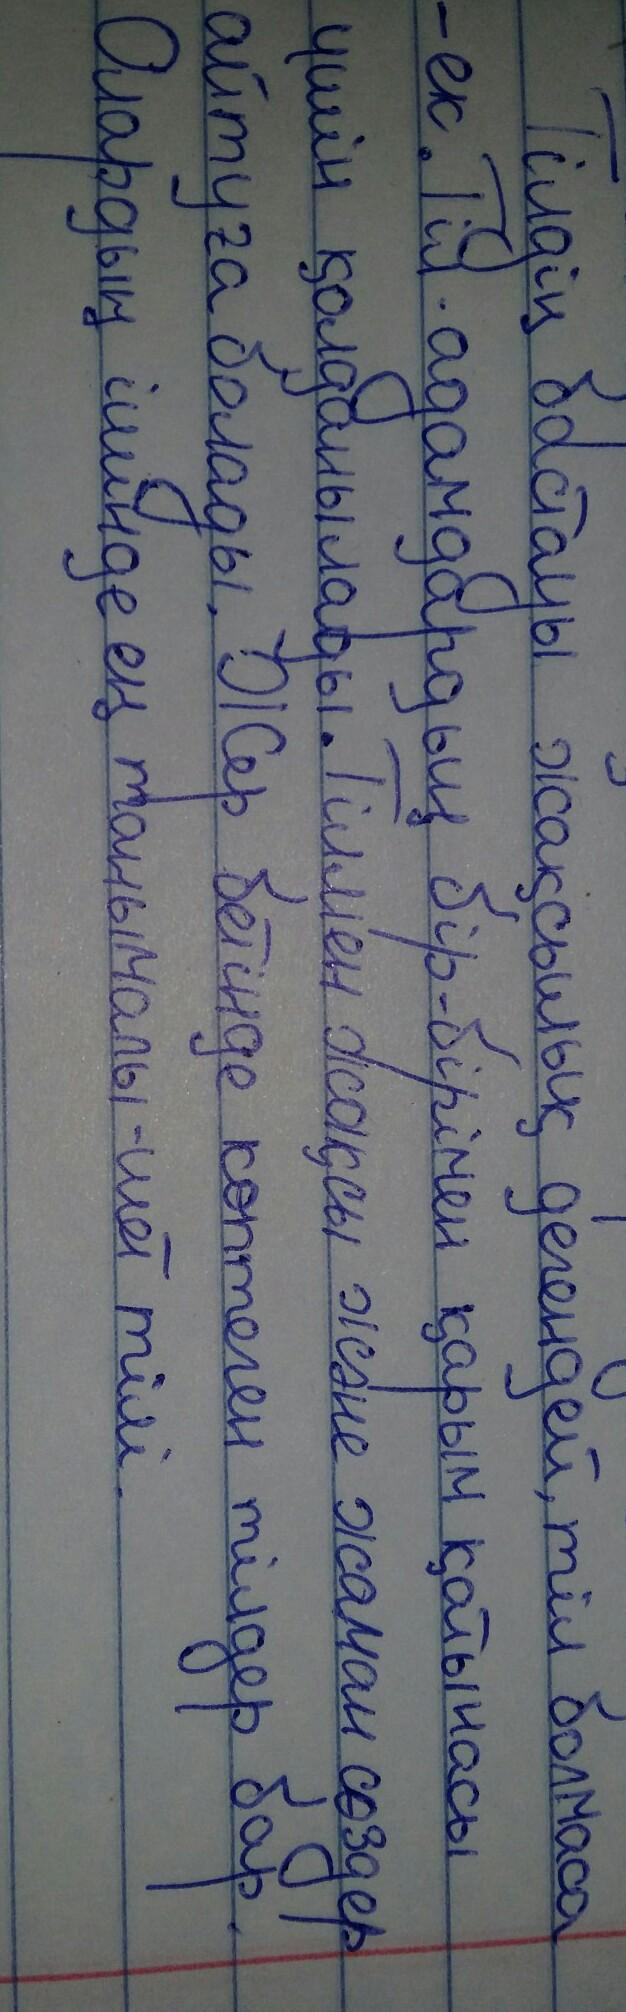 Тілдің бастауы жақсылық дегендей, тіл болмаса
-ек. Тіл-адамдардың бір-бірімен қарым қатынасы
үшін қолданылады. Тілмен жақсы және жаман сөздер
айтуға болады. Жер бетінде көптеген тілдер бар.
Олардың ішінде ең танымалы-шет тілі.